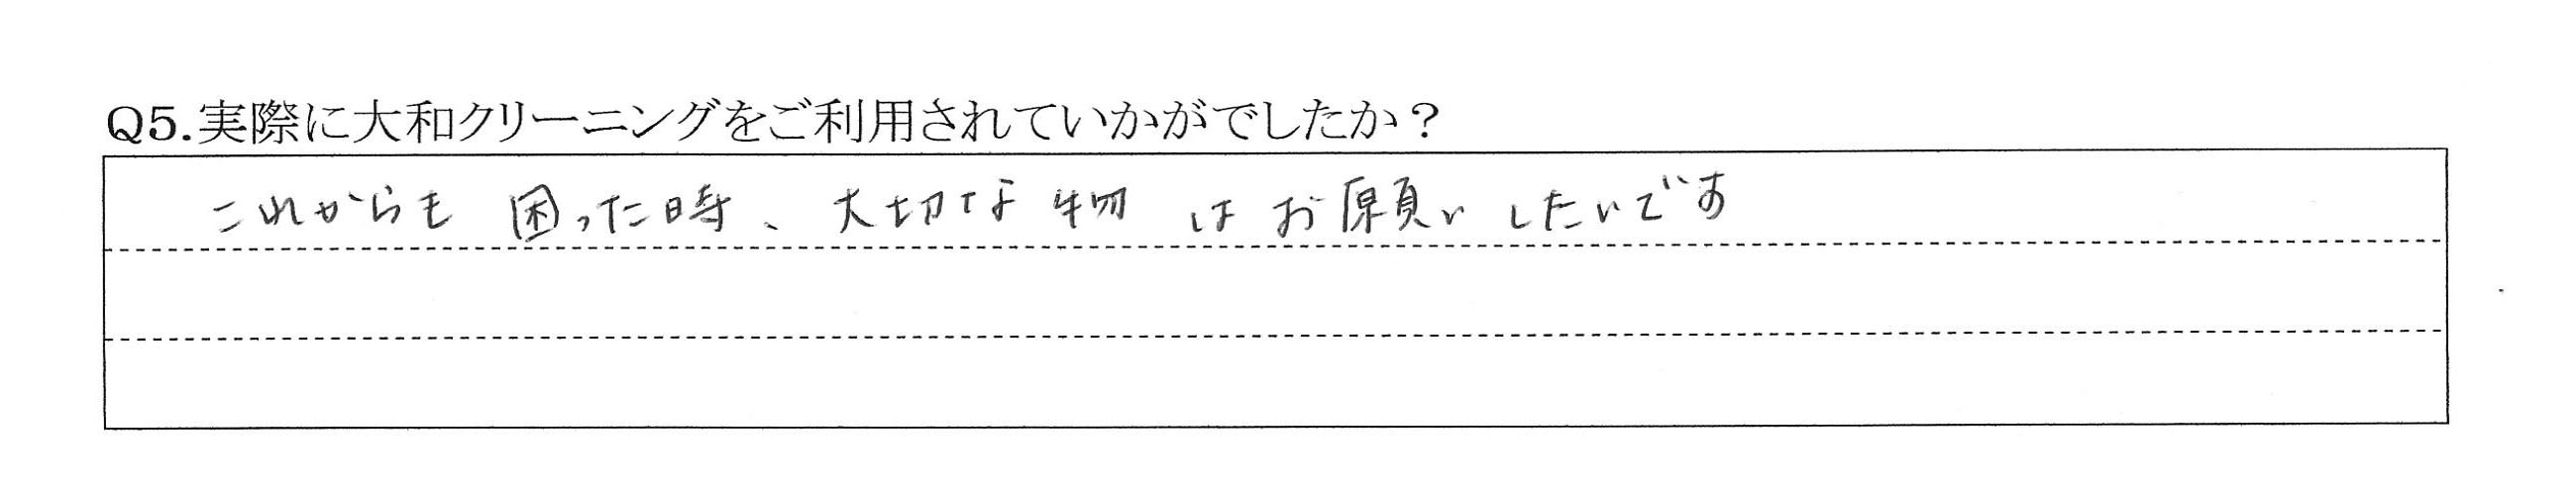 Q5.実際に大和クリーニングをご利用されていかがでしたか？
これからも 困った時、大切な物 はお願い したいです